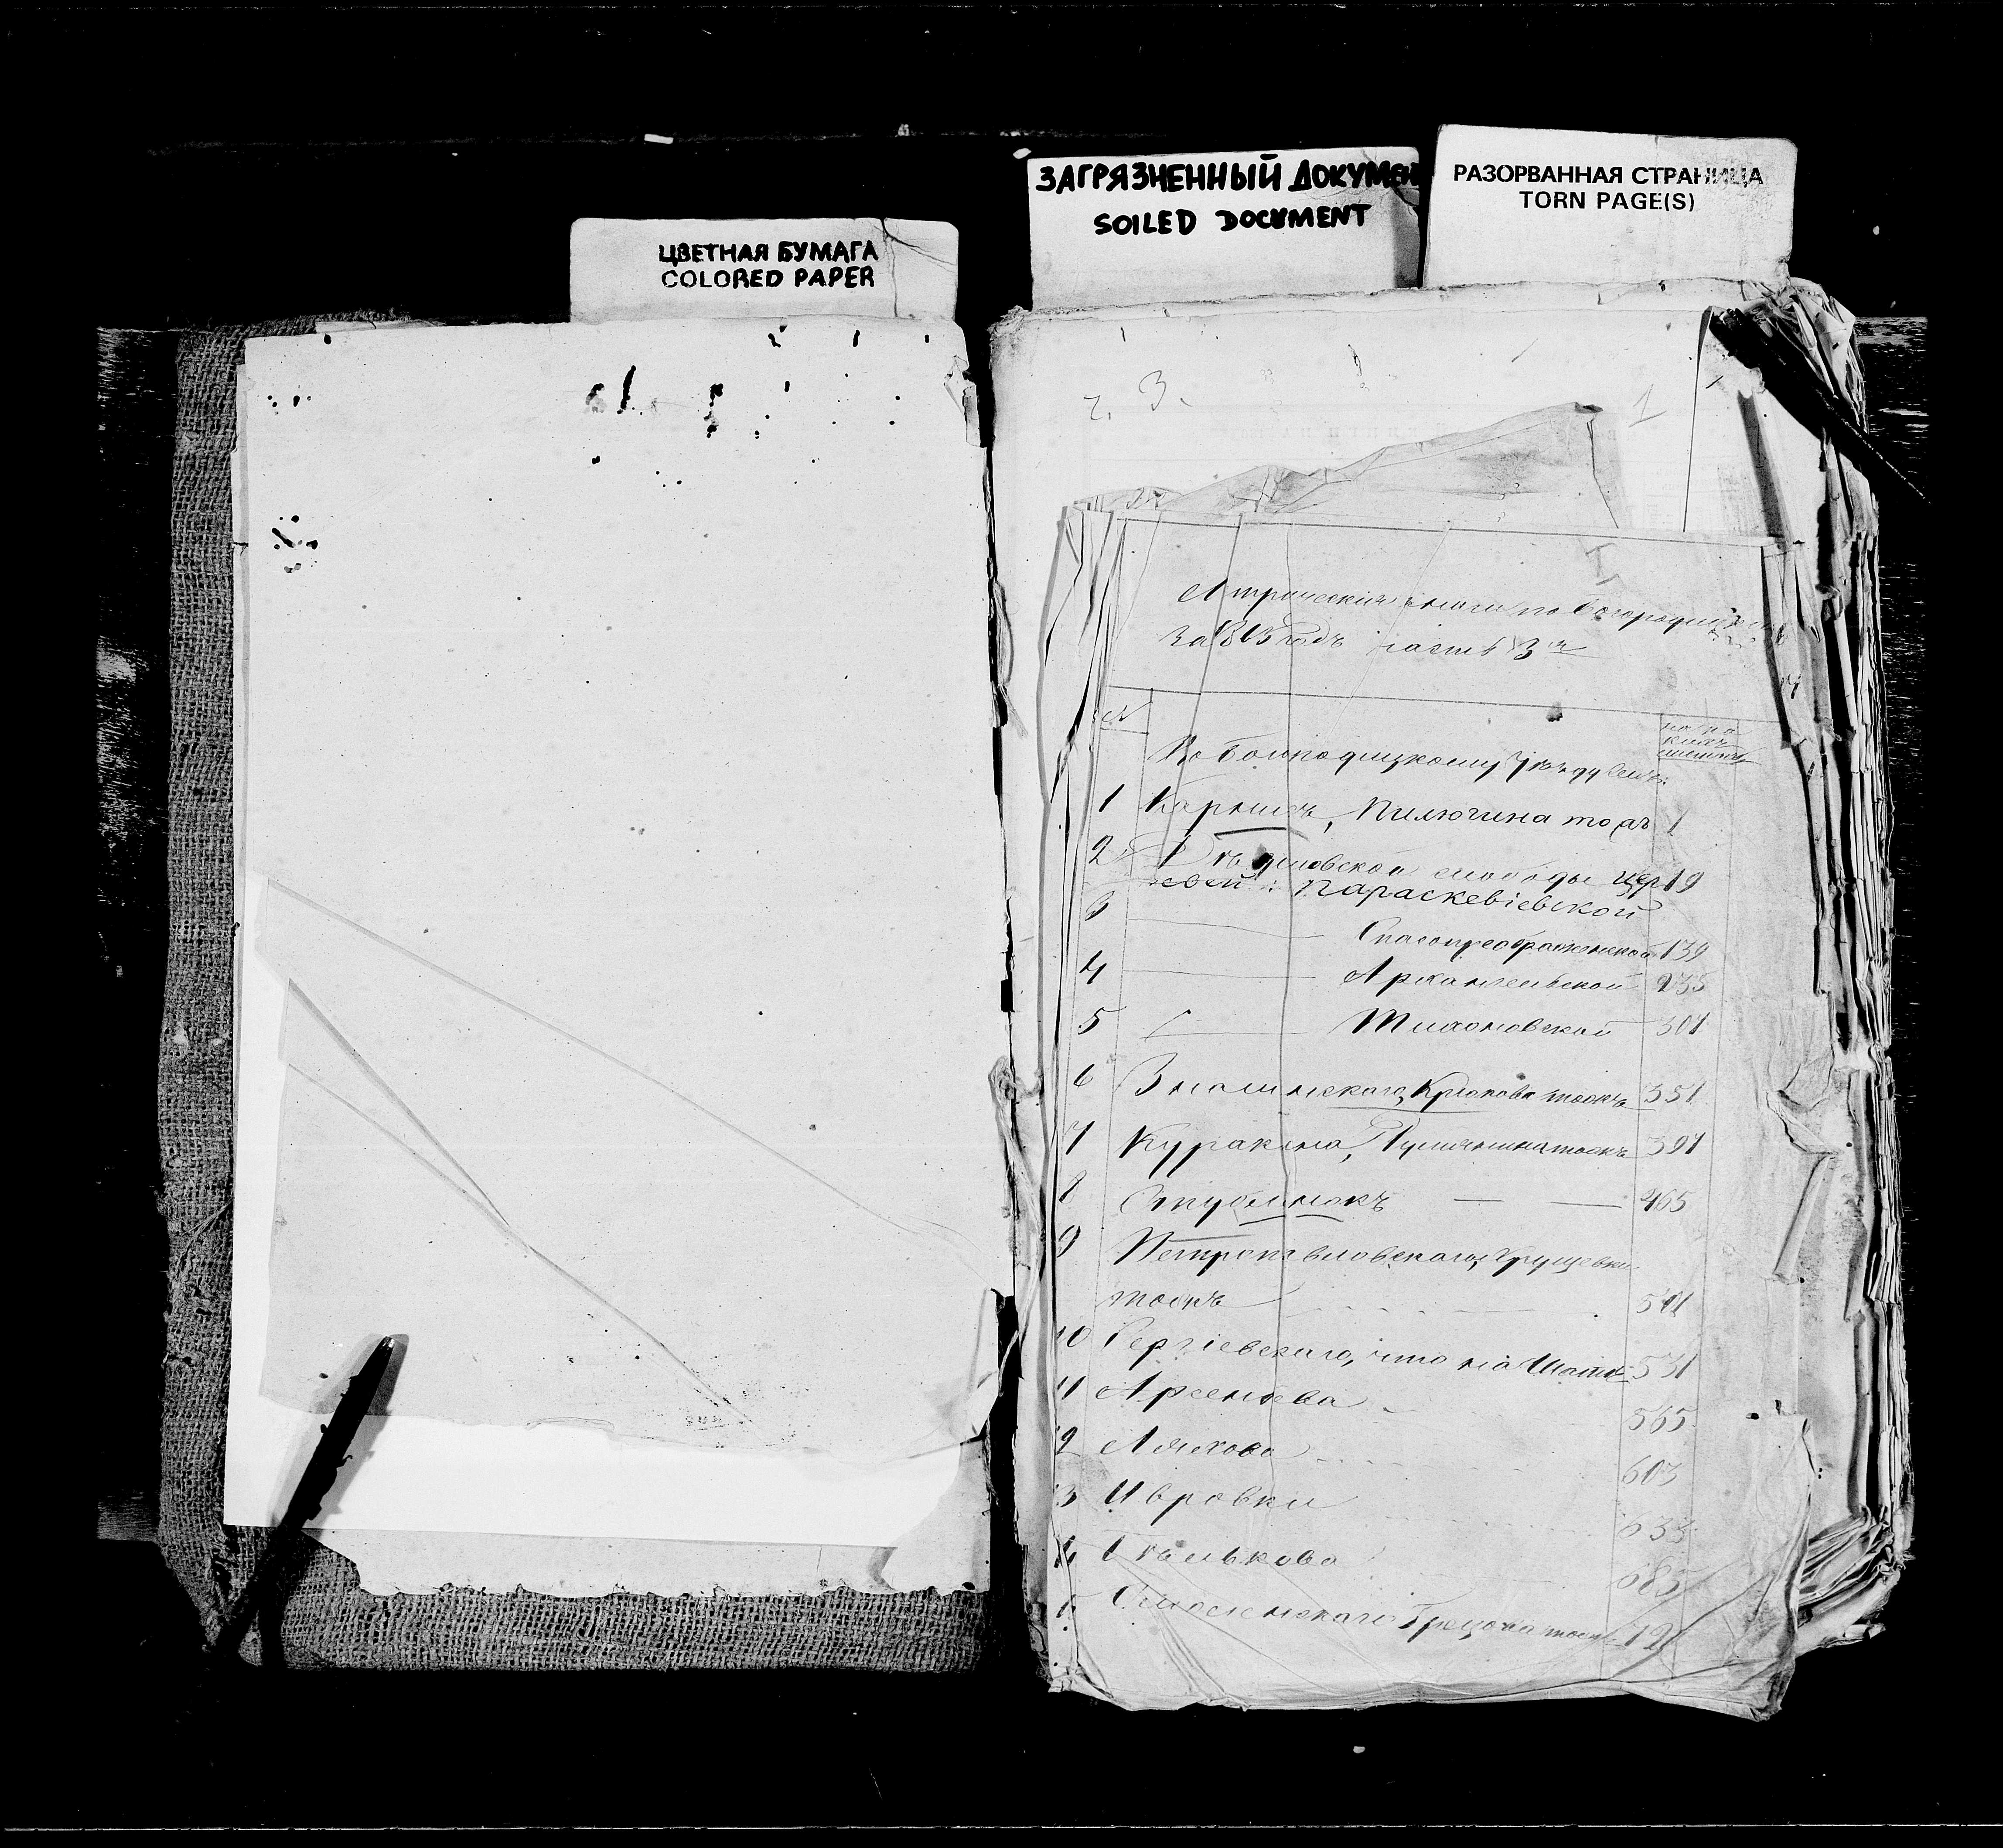 ЦВЕТНАЯ БУМАГА
COLORED PAPER
ЗАГРЯЗНЕННЫЙ ДОКУМЕН
SOILED DOCUMENT
РАЗОРВАННАЯ СТРАНИЦА
TORN PAGE(S)
ч. 3.
1
книги по Богородицк
За 1863 годъ часть 3я
№
По Богородицкому Уѣзду Селъ:
1 Карниц, Пилюгина тожъ 1
2 Дѣдиловской слободы цер 19
квей: Параскевіевской
3 Спасопреображенской 139
4 Архангельской 235
5 Тихоновской 307
6 Знаменскаго, Крюкова тожъ 351
7 Куракина, Румянцна тожъ 397
8 Студенокъ 465
9 Петропавловскаго, Хрущевки
тожъ 501
10 Сергіевскаго, что на Шать 531
11 Арсеньева 565
12 Ляхово 603
13 Ивровки 633
14 Стѣлькова 685
15 Смоленскаго Грецова тожъ 72